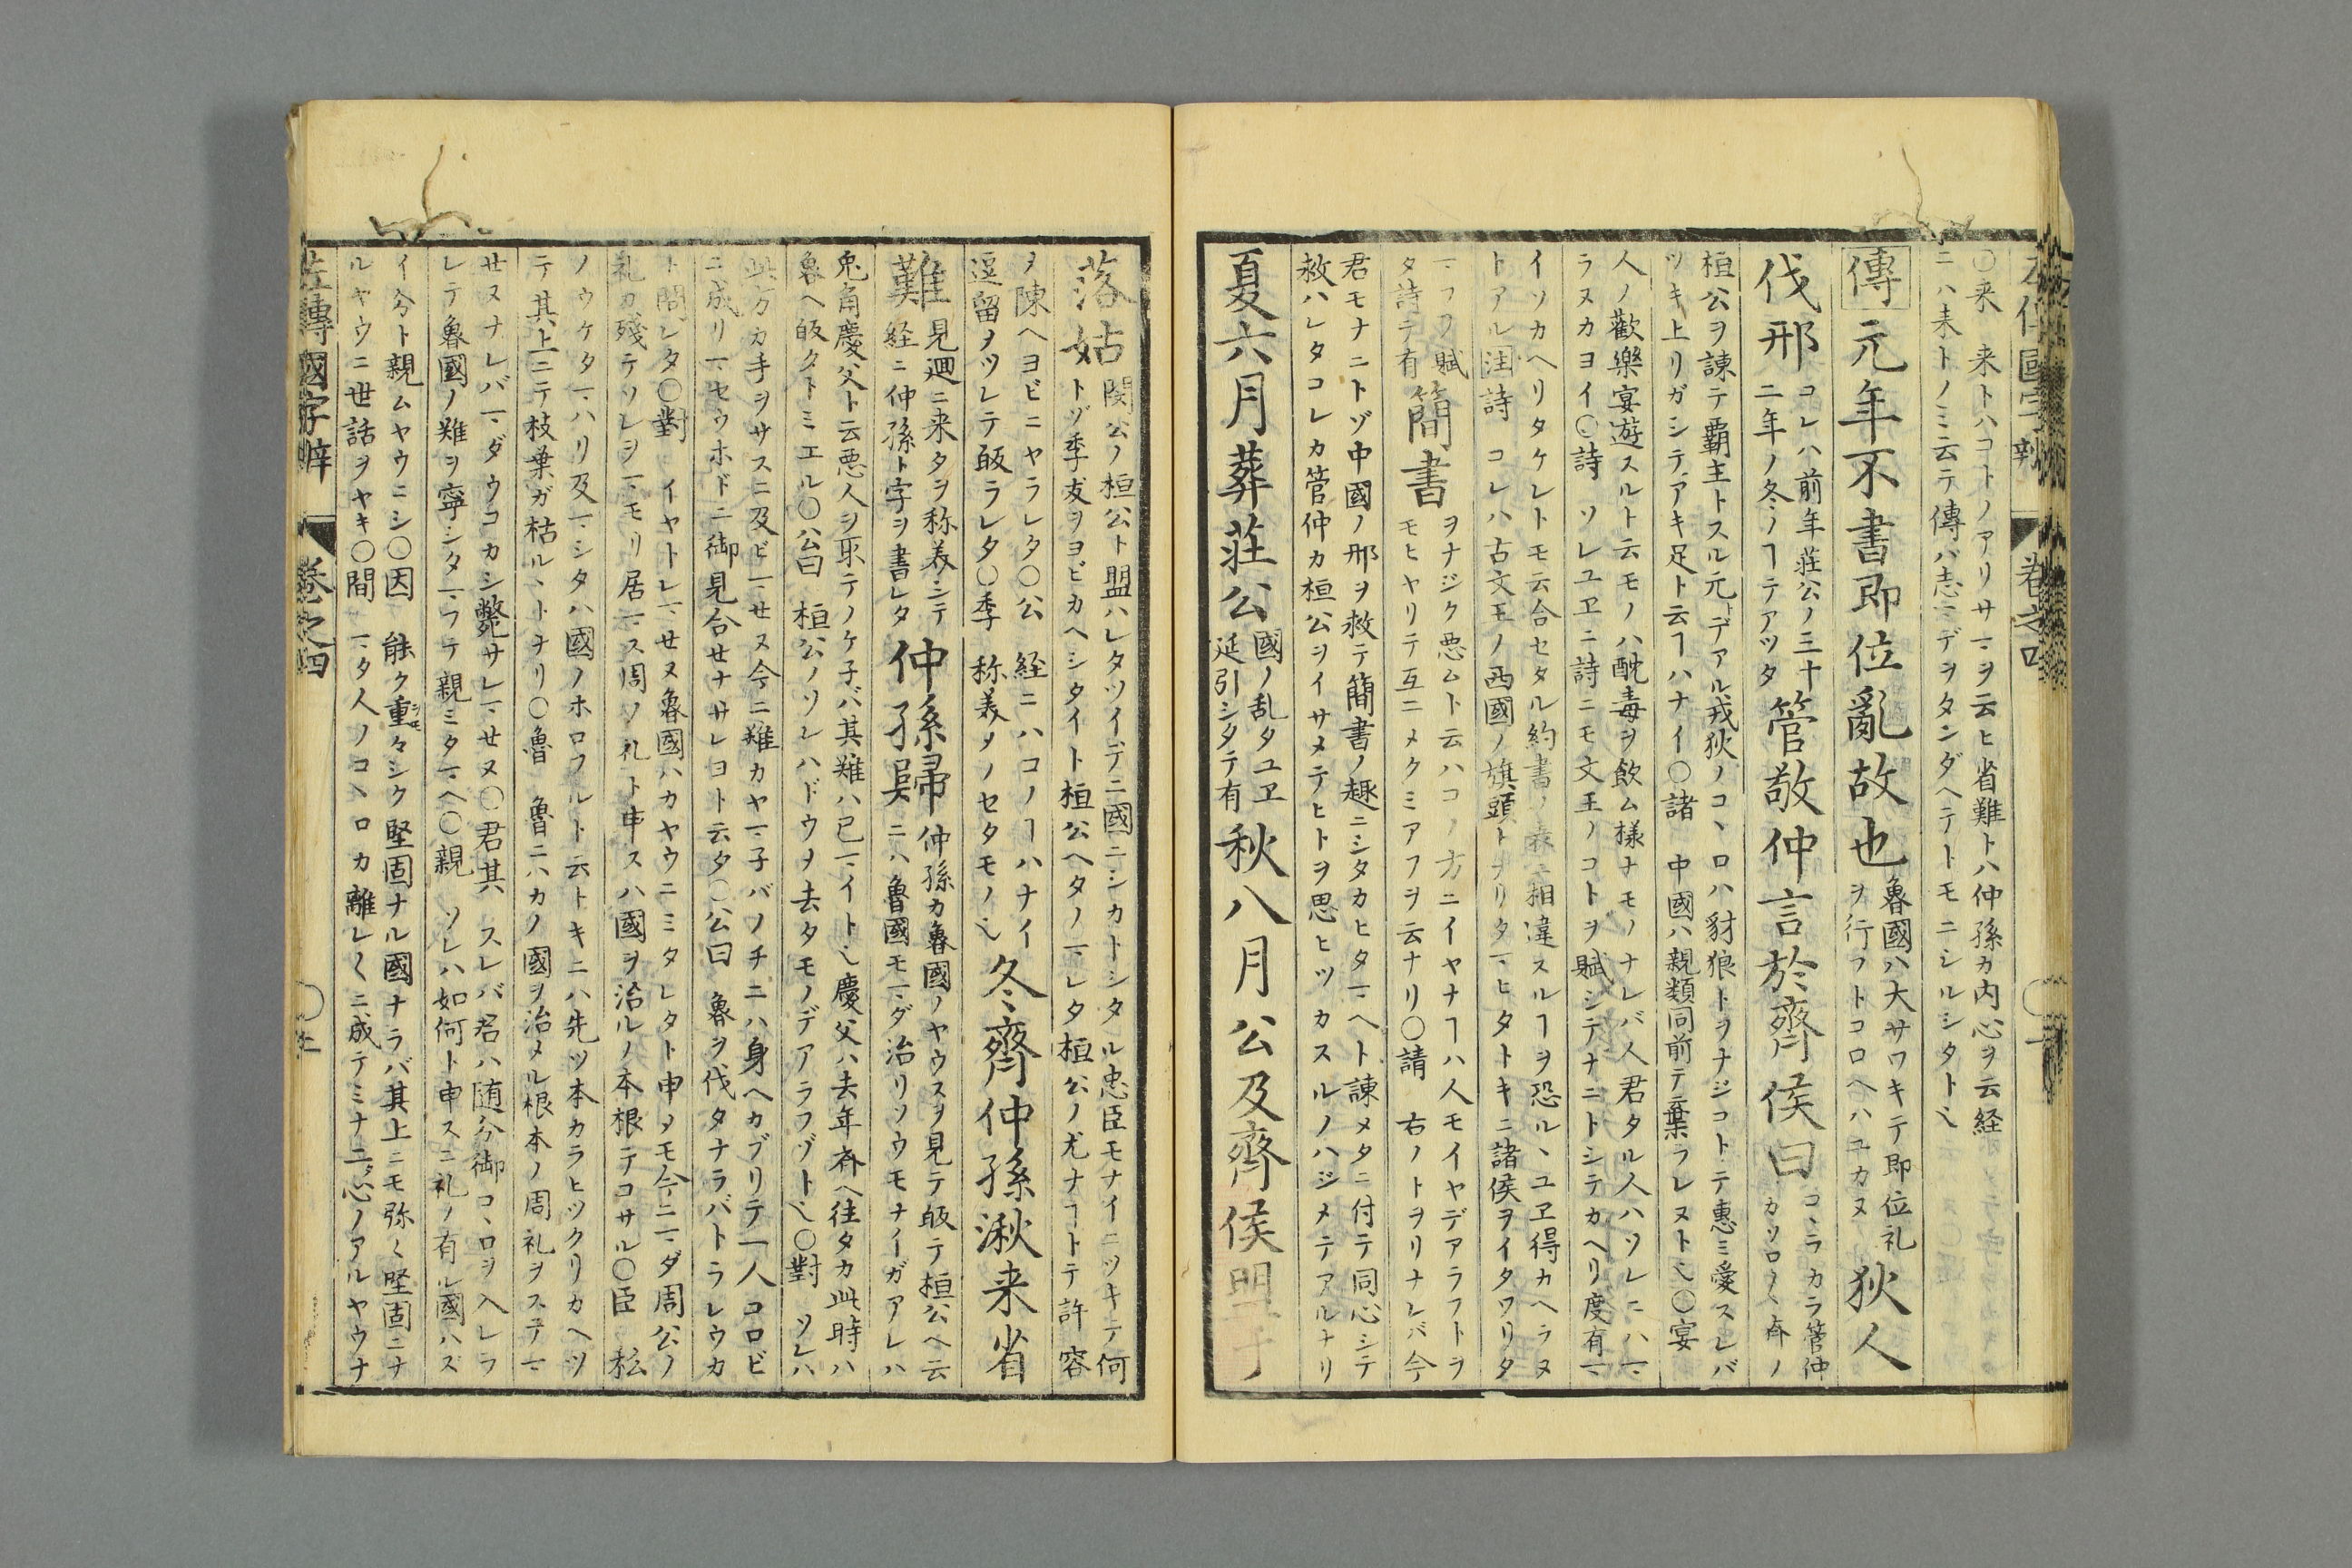 〇来 来トハコトノアリサ𪜈ヲ云ヒ省難トハ仲孫カ内心ヲ云経
ニハ来トノミ云テ傳バ志ミデヲタンダヘテトモニシルシタト
傳元年不書即位亂故也
魯國ハ大サワキテ即位礼
ヲ行フトコロヘハユカヌ
狄人
伐邢
コレハ前年莊公ノ三十
二年ノ冬ノヿテアツタ
管敬仲言於齊侯曰
コヽラカラ管仲
カソロ〱斉ノ
桓公ヲ諫テ覇主トスル元デアル戎狄ノコヽロハ豺狼トヲナジコトテ惠ミ愛スレバ
ツキ上リガシテアキ足ト云ヿハナイ〇諸 中國ハ親類同前テ棄ラレヌト〇宴
人ノ歡樂宴遊スルト云モノハ酖毒ヲ飲ム様ナモノナレバ人君タル人ハソレニハ
ラヌカヨイ〇詩 ソレユヱニ詩ニモ文王ノコトヲ賦シテナニトシテカヘリ度有
イソカヘリタケレトモ云合セタル約書ノ表ニ相違スルヿヲ恐ルヽユヱ得カヘラヌ
トアル注詩 コレハ古文王ノ西國ノ旗頭トナリタヒタトキニ諸侯ヲイタワリタ
フヲ賦
タ詩テ有
簡書
ヲナジク悪ムト云ハコノ方ニイヤナヿハ人モイヤデアラフトヲ
モヒヤリテ互ニメクミアフヲ云ナリ〇請 右ノトヲリナレバ今
君モナニトゾ中國ノ邢ヲ救テ簡書ノ趣ニシタカヒタヘト諫メタニ付テ同心シテ
救ハレタコレカ管仲カ桓公ヲイサメテヒトヲ思ヒツカスルノハジメテアルナリ
夏六月葬莊公
國ノ乱タユヱ
延引シタテ有
秋八月公及齊侯盟于
落姑
閔公ノ桓公ト盟ハレタツイデニ國ニシカトシタル忠臣モナイニツキテ何
トゾ季友ヲヨビカヘシタイト桓公ヘタノレタ桓公ノ尤ナヿトテ許容
ヲ陳ヘヨビニヤラレタ〇公 経ニハコノヿハナイ
逗留ヲツレテ皈ラレタ〇季 称美ヲノセタモノ
冬齊仲孫湫来省
難
見廻ニ来タヲ称美シテ
経ニ仲孫ト字ヲ書レタ
仲孫歸
仲孫カ魯國ノヤウスヲ見テ皈テ桓公ヘ云
ニハ魯國モダ治リソウモナイガアレハ
兎角慶父ト云悪人ヲ取テノケ子バ其難ハ已イト慶父ハ去年斉ヘ往タカ此時ハ
魯ヘ皈タトミエル〇公曰 桓公ノソレハドウヲ去タモノデアラフゾト〇對 ソレハ
此方カ手ヲサスニ及ビセヌ今ニ難カヤ子バノチニハ身ヘカブリテ一人コロビ
ニ成リセウホドニ御見合セナサレヨト云タ〇公曰 魯ヲ伐タナラバトラレウカ
ト問レタ〇對 イヤトレセヌ魯國ハカヤウニミタレタト申メモ今ニダ周公ノ
礼カ殘テソレヲモリ居ス周ノ礼ト申スハ國ヲ治ルノ本根テコサル〇臣 松
ノウケタハリ及シタハ國ノホロフルト云トキニハ先ツ本カラヒツクリカヘツ
テ其上ニテ枝葉ガ枯ルヽトナリ〇魯 魯ニハカノ國ヲ治メル根本ノ周礼ヲステ
セヌナレバダウコカシ斃サレセヌ〇君其 スレバ君ハ随分御コヽロヲ入レラ
レテ魯國ノ难ヲ寧シタフテ親ミタヘ〇親 ソレハ如何ト申スニ礼ノ有ル國ハズ
イ分ト親ムヤウニシ〇因 能ク重々シク堅固ナル國ナラバ其上ニモ弥〱堅固ニナ
ルヤウニ世話ヲヤキ〇間 タ人ノコヽロカ離レ〱ニ成テミナ二心ノアルヤウナ
左傳國字辨 卷之四